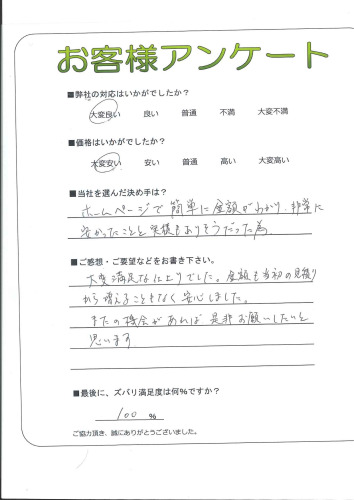 お客様アンケート
■弊社の対応はいかがでしたか？
大変良い 良い 普通 不満 大変不満
■価格はいかがでしたか？
大変安い 安い 普通 高い 大変高い
■当社を選んだ決め手は？
ホームページで簡単に金額がわかり、非常に
安かったことと実績もありそうだった為
■ご感想・ご要望などをお書き下さい。
大変満足な仕上りでした。金額も当初の見積り
から増えることもなく安心しました。
またの機会があれば是非お願いしたいと
思います
■最後に、ズバリ満足度は何%ですか？
100 %
ご協力頂き、誠にありがとうございました。